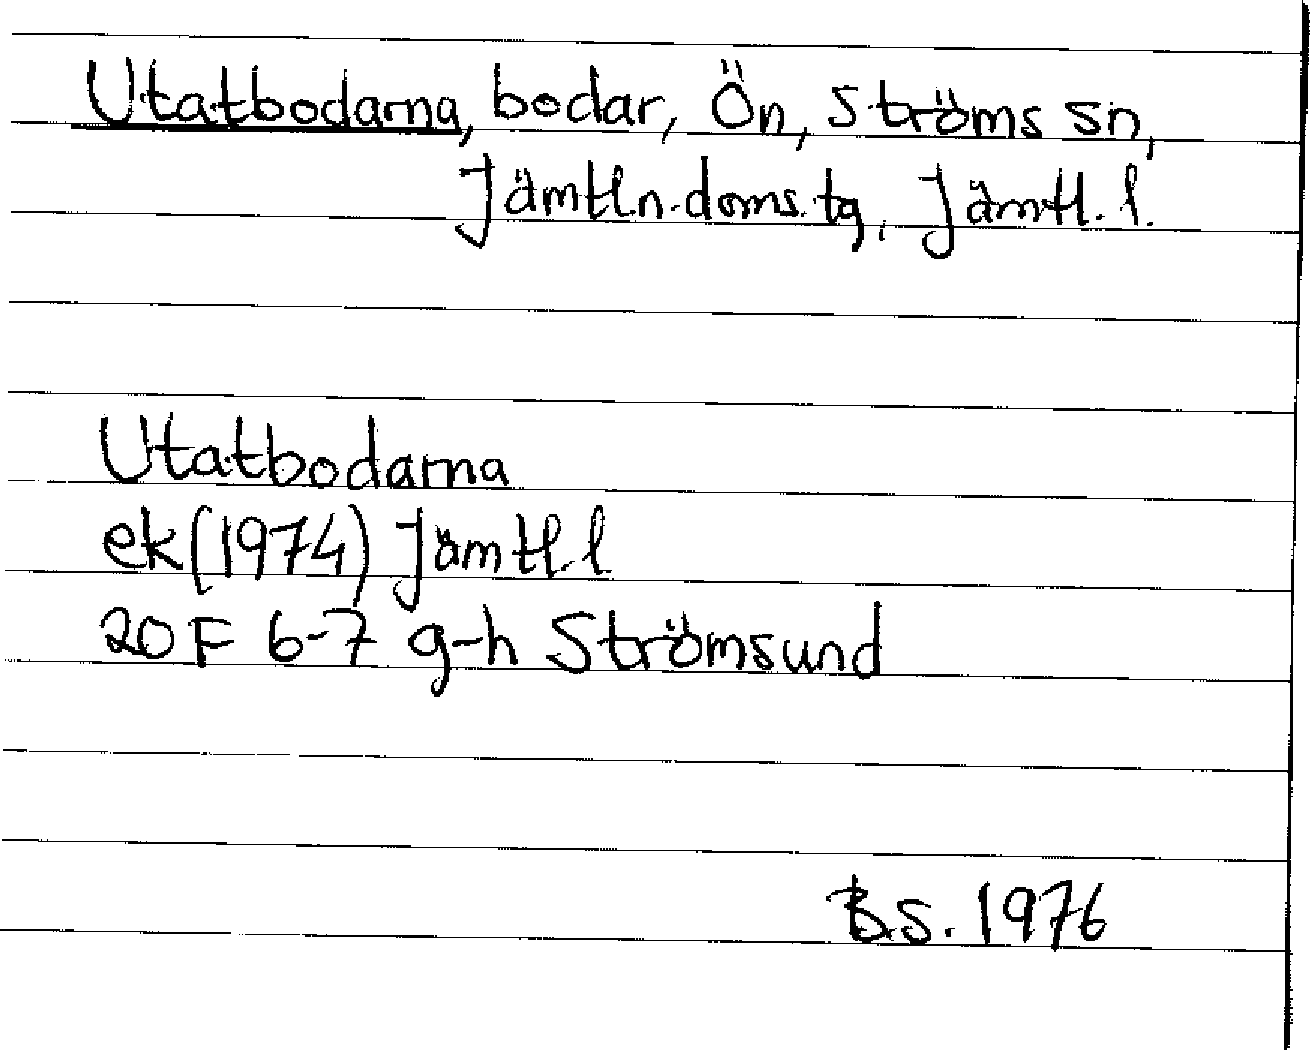 Utatbodarna, bodar, Ön, Ströms sn,
Jämtl.n. doms. tg, Jämtl. l.
Utatbodarna
ek (1974) Jämtl. l
20 F 6-7 g-h Strömsund
B.S. 1976